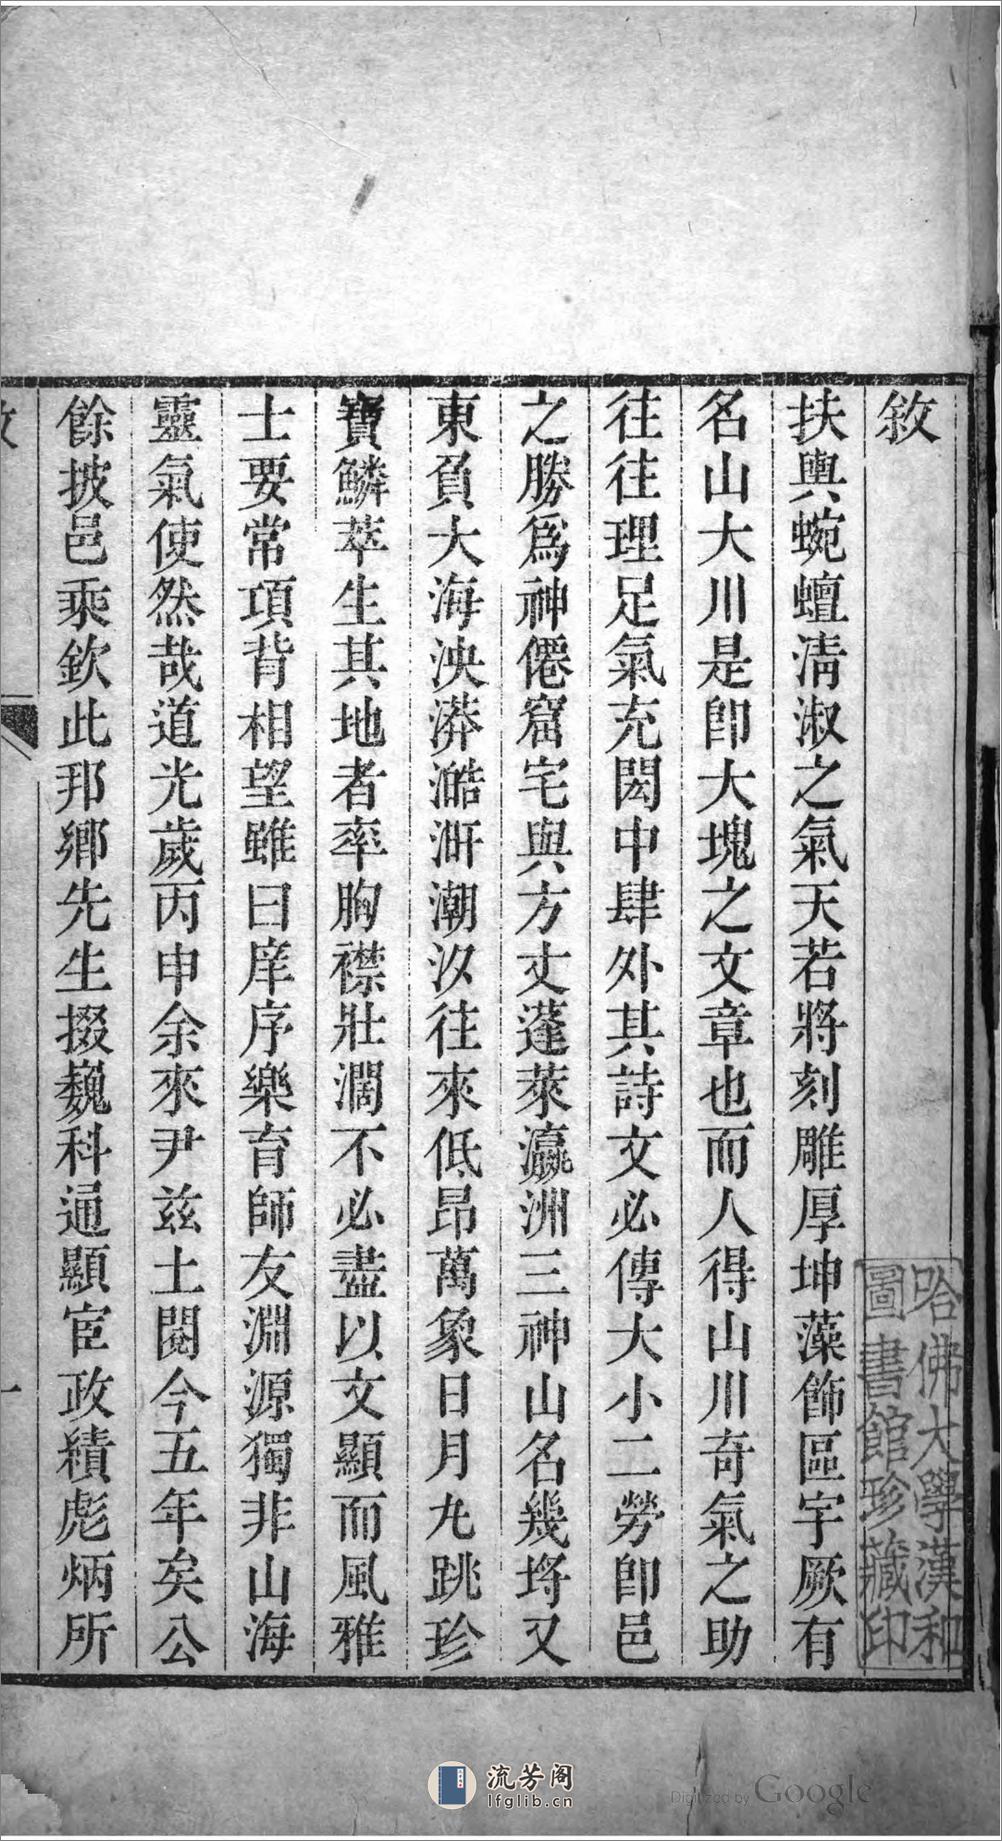 敘
扶輿蜿蟺淸淑之氣天若將刻雕厚坤藻飾區宇厥有
名山大川是卽大塊之文章也而人得山川奇氣之助
往往理足氣充閎中肆外其詩文必傳大小二勞卽邑
之勝爲神僊窟宅與方丈蓬萊瀛洲三神山名幾埒又
東負大海泱漭澔汗潮汐往來低昂萬象日月丸跳珍
寶鱗萃生其地者率胸襟壯濶不必盡以文顯而風雅
士要常項背相望雖曰庠序樂育師友淵源獨非山海
靈氣使然哉道光歲丙申余來尹兹土閱今五年矣公
餘披邑乘欽此邦鄉先生掇巍科通顯宦政績彪炳所
哈佛大學漢和
圖書館珍藏印
流芳阁
lfglib.cn
Digitized by Google